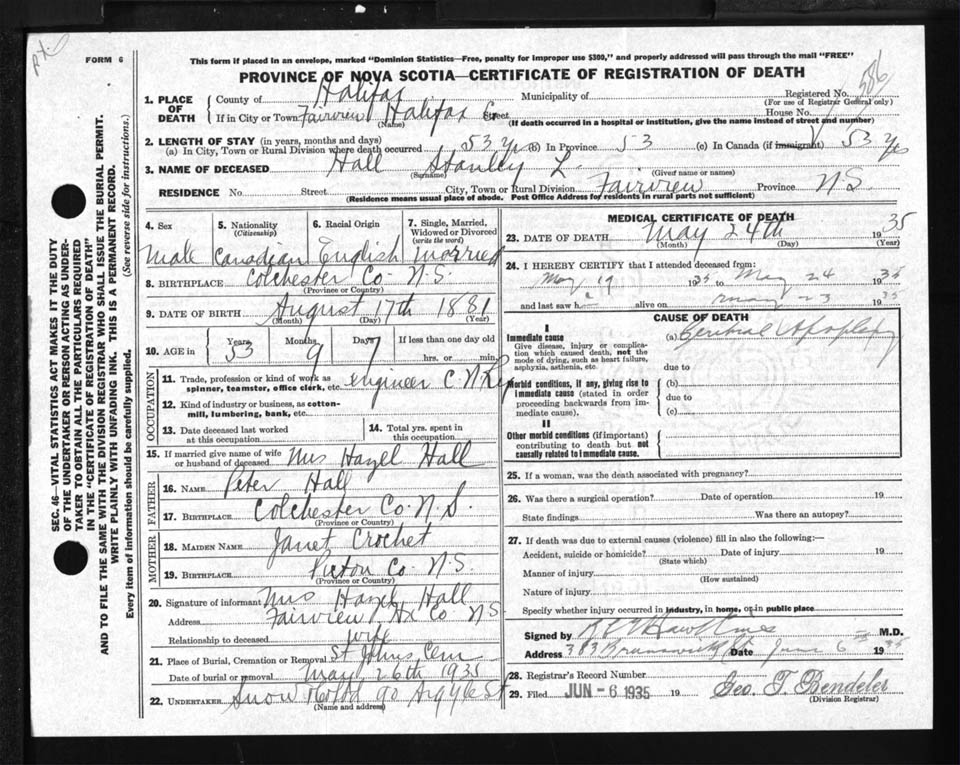 FORM 6
This form if placed in an envelope, marked "Dominion Statistics—Free, penalty for improper use $300," and properly addressed will pass through the mail "FREE"
PROVINCE OF NOVA SCOTIA—CERTIFICATE OF REGISTRATION OF DEATH
586
1. PLACE OF DEATH
County of Halifax Municipality of Registered No.
(For use of Registrar General only)
If in City or Town Fairview Halifax Co Street House No.
(Name) (If death occurred in a hospital or institution, give the name instead of street and number)
2. LENGTH OF STAY (in years, months and days)
(a) In City, Town or Rural Division where death occurred 53 yrs (b) In Province 53 (c) In Canada (if immigrant) 53 yrs
3. NAME OF DECEASED Hall Stanley L.
(Surname) (Given name or names)
RESIDENCE No. Street City, Town or Rural Division Fairview Province N.S.
(Residence means usual place of abode. Post Office Address for residents in rural parts not sufficient)
4. Sex 5. Nationality (Citizenship) 6. Racial Origin 7. Single, Married, Widowed or Divorced (write the word)
Male Canadian English Married
8. BIRTHPLACE Colchester Co N.S.
(Province or Country)
9. DATE OF BIRTH August 17th 1881
(Month) (Day) (Year)
10. AGE in Years 53 Months 9 Days 7 If less than one day old
hrs. or min.
OCCUPATION
11. Trade, profession or kind of work as spinner, teamster, office clerk, etc. engineer C.N.Ry
12. Kind of industry or business, as cotton-mill, lumbering, bank, etc.
13. Date deceased last worked at this occupation
14. Total yrs. spent in this occupation
15. If married give name of wife or husband of deceased Mrs Hazel Hall
FATHER
16. NAME Peter Hall
17. BIRTHPLACE Colchester Co. N.S.
(Province or Country)
MOTHER
18. MAIDEN NAME Janet Crochet
19. BIRTHPLACE Pictou Co N.S.
(Province or Country)
20. Signature of informant Mrs Hazel Hall
Address Fairview, Hx Co N.S.
Relationship to deceased wife
21. Place of Burial, Cremation or Removal St Johns Cem
Date of burial or removal May 26th 1935
22. UNDERTAKER Snow & Co Ltd 90 Argyle St
(Name and address)
MEDICAL CERTIFICATE OF DEATH
23. DATE OF DEATH May 24th 1935
(Month) (Day) (Year)
24. I HEREBY CERTIFY that I attended deceased from:
May 19 1935 to May 24 1935
and last saw h alive on May 23 1935
CAUSE OF DEATH
I
Immediate cause
Give disease, injury or complication which caused death, not the mode of dying, such as heart failure, asphyxia, asthenia, etc.
(a) Cerebral Apoplexy
due to
Morbid conditions, if any, giving rise to immediate cause (stated in order proceeding backwards from immediate cause).
(b)
due to
(c)
II
Other morbid conditions (if important) contributing to death but not causally related to immediate cause.
25. If a woman, was the death associated with pregnancy?
26. Was there a surgical operation? Date of operation 19
State findings Was there an autopsy?
27. If death was due to external causes (violence) fill in also the following:—
Accident, suicide or homicide? Date of injury 19
(State which)
Manner of injury
(How sustained)
Nature of injury
Specify whether injury occurred in industry, in home, or in public place
Signed by M.D.
Address 383 Brunswick St Date June 6th 1935
28. Registrar's Record Number
29. Filed JUN - 6 1935 19 Geo. T. Bendeler
(Division Registrar)
SEC. 46—VITAL STATISTICS ACT MAKES IT THE DUTY
OF THE UNDERTAKER OR PERSON ACTING AS UNDERTAKER TO OBTAIN ALL THE PARTICULARS REQUIRED
IN THE "CERTIFICATE OF REGISTRATION OF DEATH"
AND TO FILE THE SAME WITH THE DIVISION REGISTRAR WHO SHALL ISSUE THE BURIAL PERMIT.
WRITE PLAINLY WITH UNFADING INK. THIS IS A PERMANENT RECORD.
Every item of information should be carefully supplied. (See reverse side for instructions.)